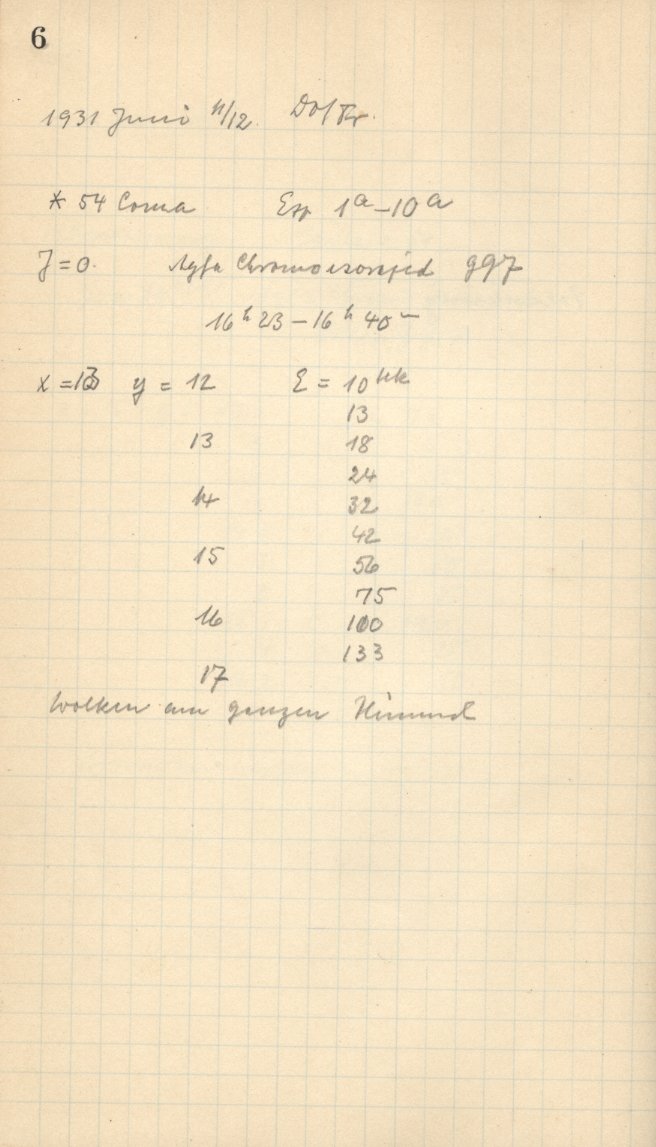 6
1931 Juni 11/12.
* 54 Coma Exp 1a–10a
J = 0. Agfa Chromoisorapid 997
16 h 23 – 16 h 40 m
x = 13 y = 12 E = 10 
13
13 18
24
14 32
42
15 56
75
16 100
133
17
Wolken am ganzen Himmel